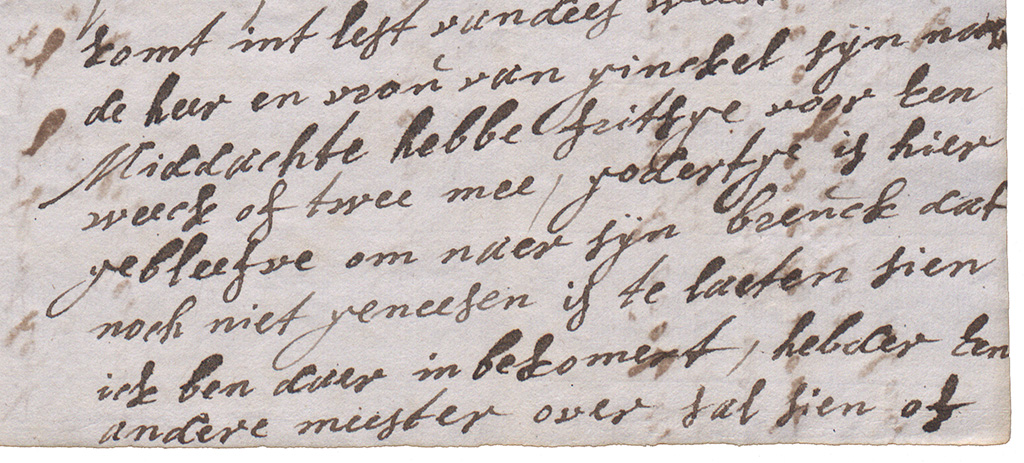 komt int lest vandees
de heer en vroŭ van ginckel syn na
Middachte hebbe fritsge voor een
weeck of twee mee, godertge is hier
gebleefve om naer syn breŭck dat
noch niet geneesen is te laeten sien
ick ben daer in bekomert, heb der een
andere meester over sal sien of